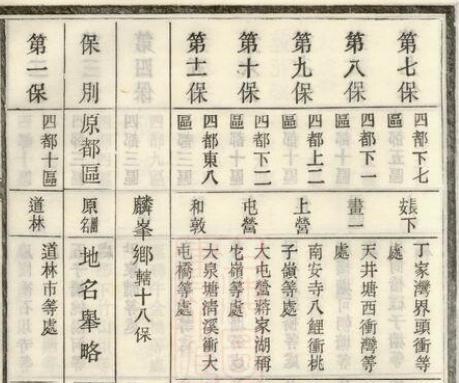 第七保
四都下七
區
下
丁家灣界頭衝等
處
第八保
四都下一
區
畫一
天井塘西衝灣等
處
第九保
四都上二
區
上營
南安寺八衝桃
子嶺等處
第十保
四都下二
區
屯營
大屯營蔣家湖稱
嶺等處
第十一保
四都東八
區
和敦
大泉塘清溪衝大
屯橋等處
麟峯鄉轄十八保
保別
原都區
原團名
地名舉略
第一保
四都十區
道林
道林市等處